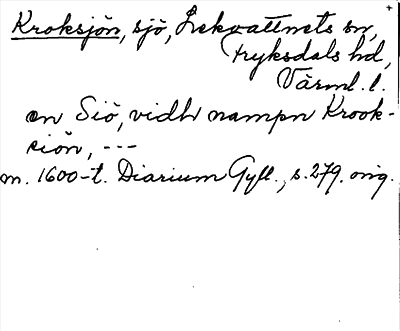 Kroksjön, sjö, Lekvattnets sn,
Fryksdals hd,
Värml. l.
en Siö, vidh nampn Krook-
siön, ---
m. 1600-t. Diarium Gyll., s. 279. orig.